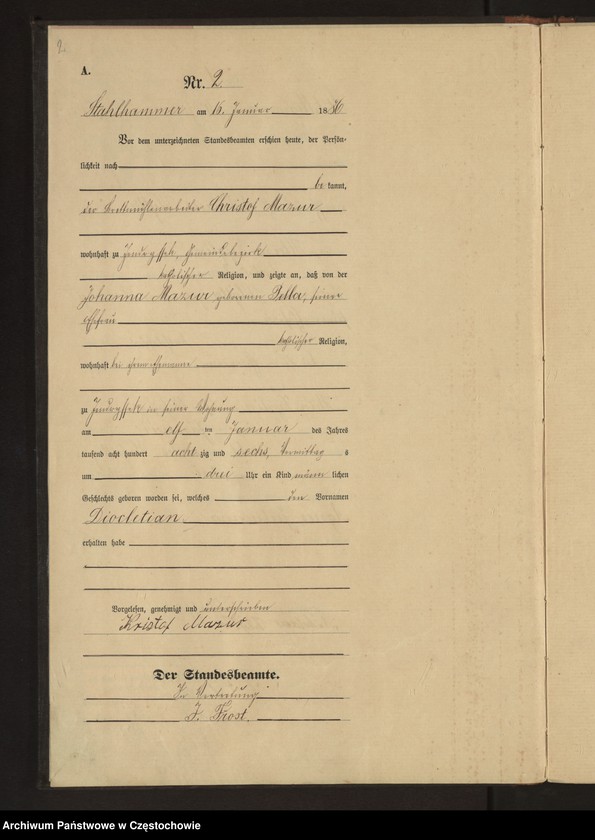 2.
A.
Nr. 2
Stahlhammer am 15. Januar 1886
Vor dem unterzeichneten Standesbeamten erschien heute, der Persön-
lichkeit nach
be kannt,
der Brettmühlenarbeiter Christof Mazur
wohnhaft zu Jendryssek, Gemeindebezirk
katholischer Religion, und zeigte an, daß von der
Johanna Mazur geborenen Pella, seiner
Ehefrau
katholischer Religion,
wohnhaft bei ihrem Ehemanne
zu Jendryssek in seiner Wohnung
am elf ten Januar des Jahres
tausend acht hundert acht zig und sechs, Vormittag s
um drei Uhr ein Kind männ lichen
Geschlechts geboren worden sei, welches den Vornamen
Diocletian
erhalten habe
Vorgelesen, genehmigt und unterschrieben
Kristof Mazur
Der Standesbeamte.
In Vertretung
J. Frost.
Archiwum Państwowe w Częstochowie